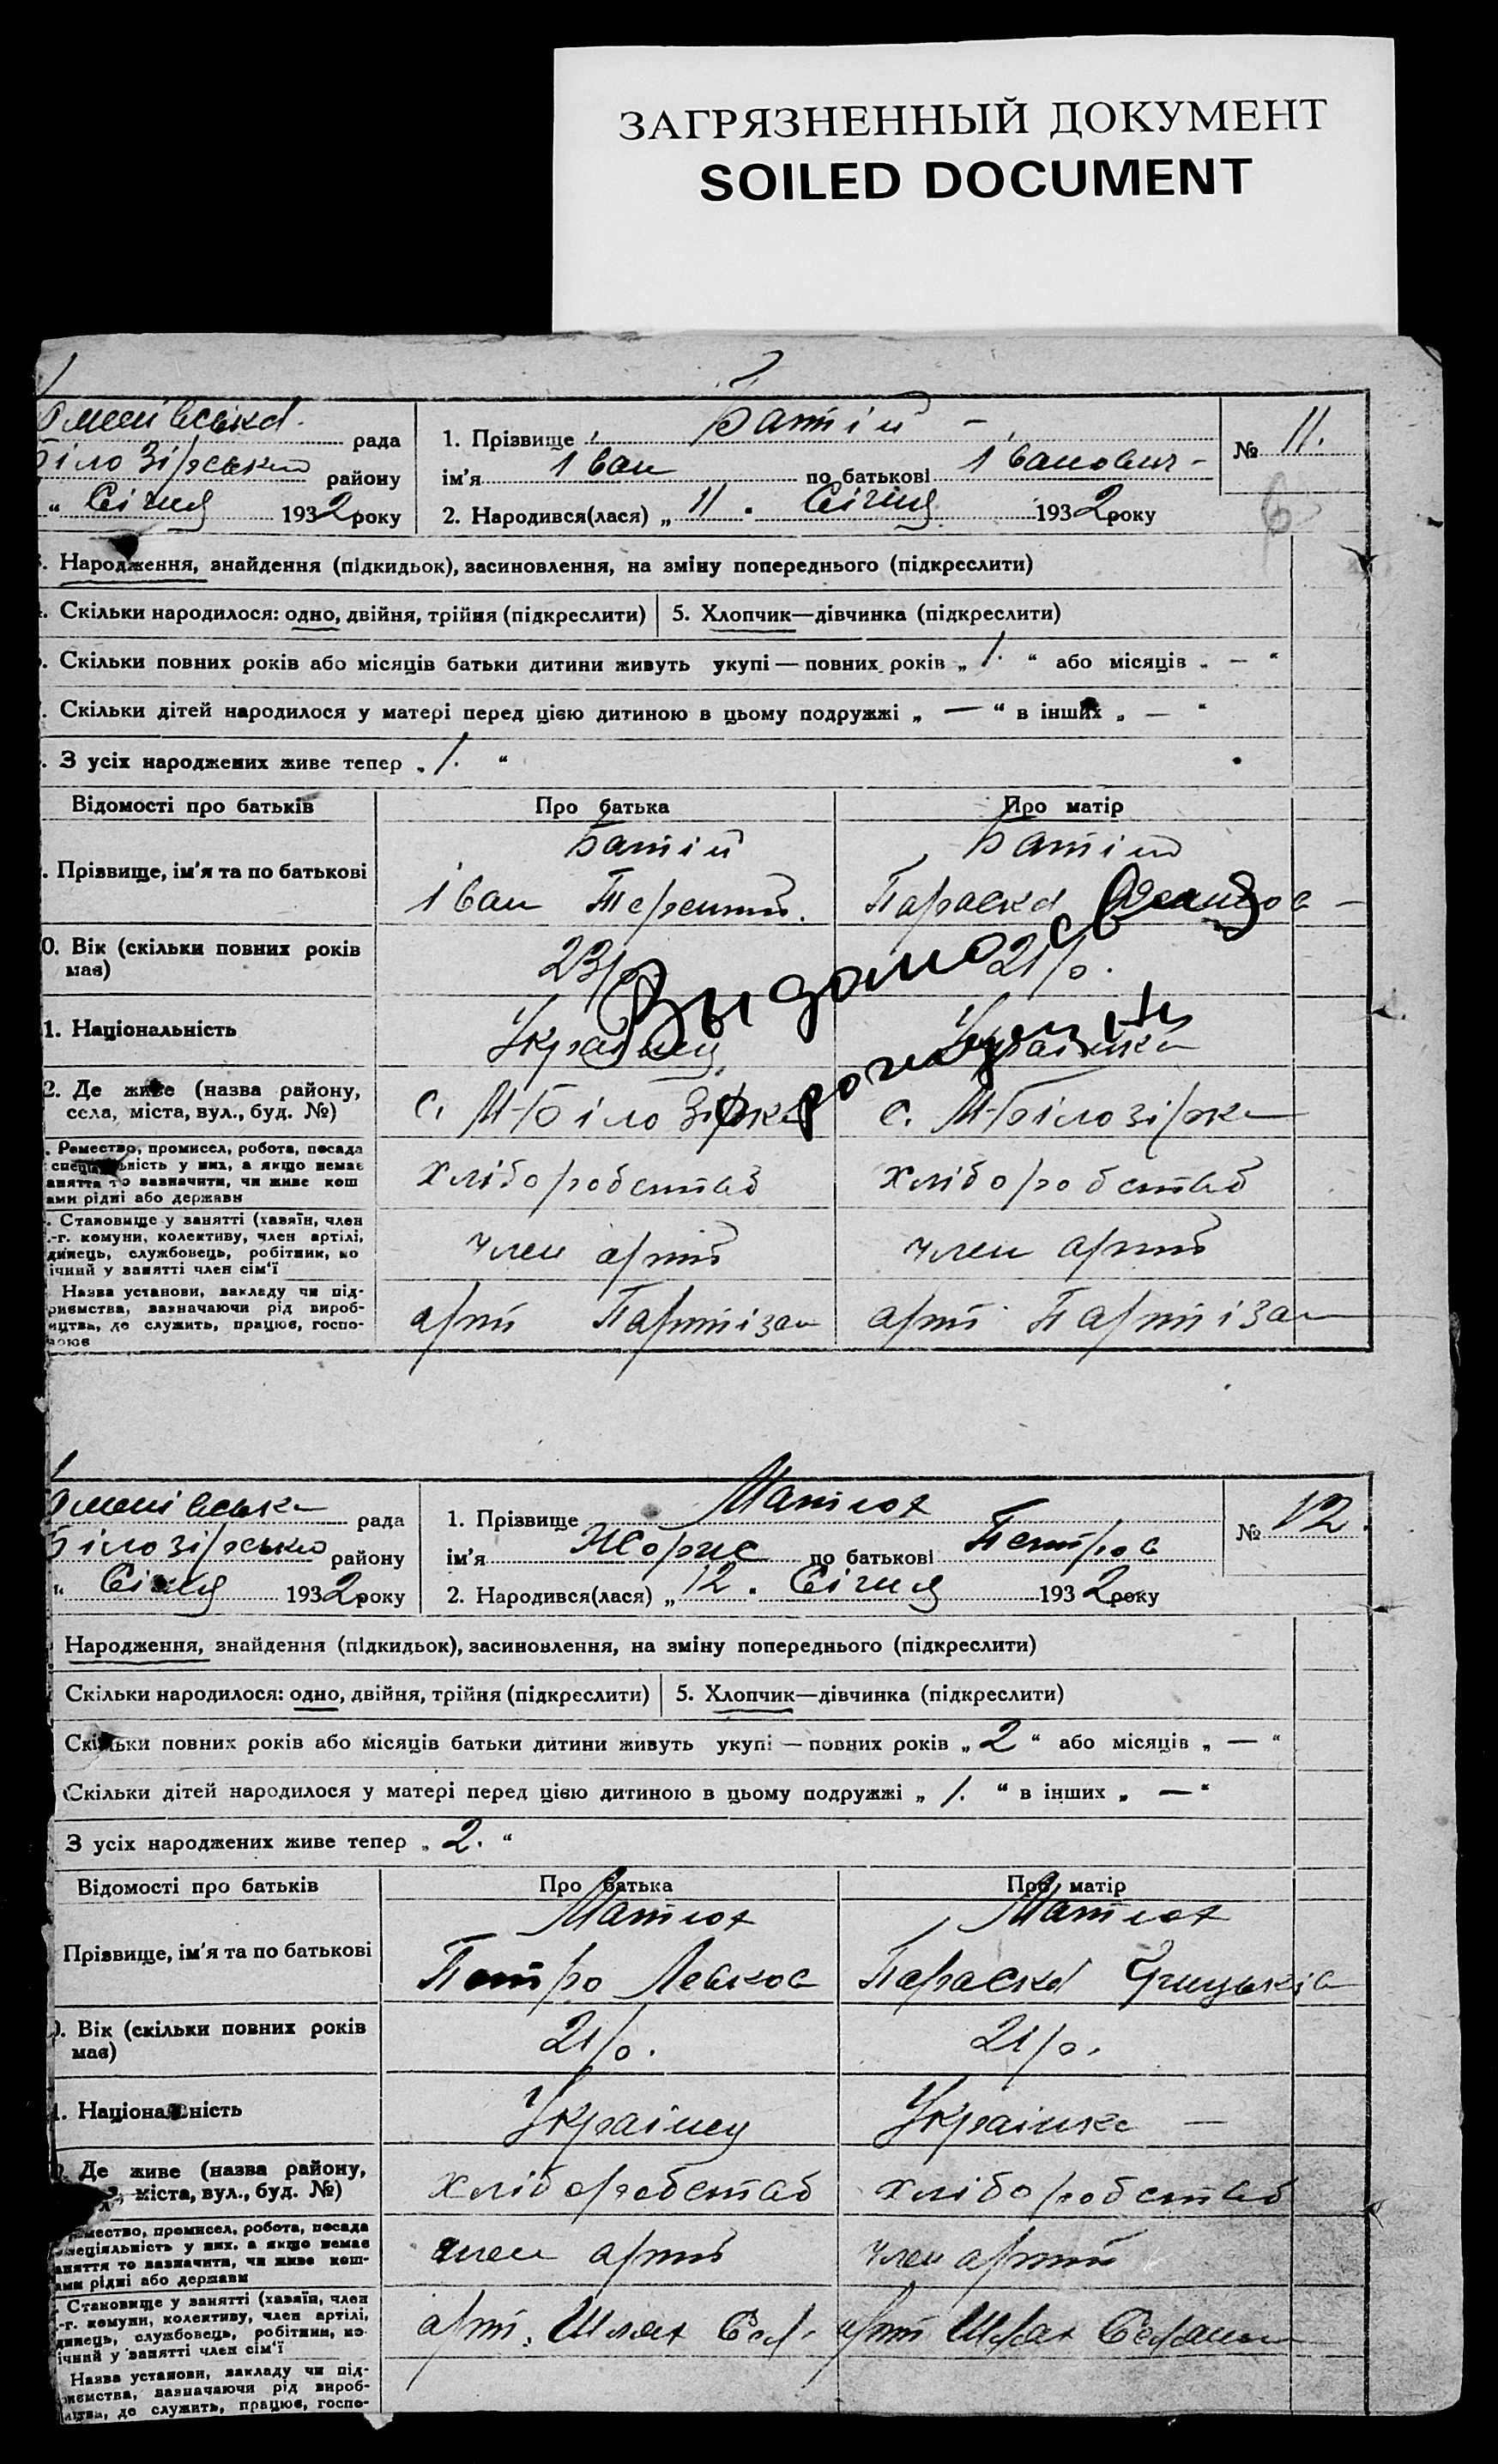 ЗАГРЯЗНЕННЫЙ ДОКУМЕНТ
SOILED DOCUMENT
рада
району
" Січня 1932 року
1. Прізвище Батій -
ім'я Іван по батькові Іванович -
2. Народився(лася) „ 11 . Січня 1932 року
№ 11.
6
. Народження, знайдення (підкидьок), засиновлення, на зміну попереднього (підкреслити)
. Скільки народилося: одно, двійня, трійня (підкреслити) 5. Хлопчик—дівчинка (підкреслити)
. Скільки повних років або місяців батьки дитини живуть укупі — повних років „ 1. “ або місяців „ — “
. Скільки дітей народилося у матері перед цією дитиною в цьому подружжі „ — “ в інших „ — “
. З усіх народжених живе тепер „ 1. “
Відомості про батьків Про батька Про матір
Батій Батій
. Прізвище, ім'я та по батькові
Іван Терентій. Параска
0. Вік (скільки повних років має) 23р. 21р.
Выдано свид
о рожден
1. Національність Українец Українка
2. Де живе (назва району, села, міста, вул., буд. №) с. М-Білозірка с. М-Білозірка
. Ремество, промисел, робота, посада
спеціальність у них, а якщо немає
заняття то вазначити, чи живе кош
ами рідні або держави
хліборобство хліборобство
. Становище у занятті (хазяїн, член
.-г. комуни, колективу, член артілі,
динець, службовець, робітник, по
ічний у занятті член сім'ї
член артіл член артіл
Назва установи, закладу чи під-
риємства, вазначаючи рід вироб-
ицтва, де служить, працює, госпо-
арт Партізан арт Партізан
рада
Білозірсько району
“ Січня 1932 року
1. Прізвище Матлох
ім'я Жорис по батькові Петров
2. Народився(лася) „ 12 . Січня 1932 року
№ 12.
Народження, знайдення (підкидьок), засиновлення, на зміну попереднього (підкреслити)
Скільки народилося: одно, двійня, трійня (підкреслити) 5. Хлопчик—дівчинка (підкреслити)
Скільки повних років або місяців батьки дитини живуть укупі — повних років „ 2 “ або місяців „ — “
Скільки дітей народилося у матері перед цією дитиною в цьому подружжі „ 1. “ в інших „ — “
З усіх народжених живе тепер „ 2. “
Відомості про батьків Про батька Про матір
Матлох Матлох
Прізвище, ім'я та по батькові
Петро Левков Параска Грицьків
. Вік (скільки повних років має) 21р. 21р.
1. Національність Українец Українка —
Де живе (назва району, міста, вул., буд. №) хліборобство хліборобство
ремество, промисел, робота, посада
спеціяльність у них, а якщо немає
заняття то вазначити, чи живе кош-
ами рідні або держави
член артіл член артіл
Становище у занятті (хазяїн, член
.-г. комуни, колективу, член артілі,
динець, службовець, робітник, по
ічний у занятті член сім'ї
арт. Шлях Сел. арт Шлях Селянин
Назва установи, закладу чи під-
риємства, вазначаючи рід вироб-
ицтва, де служить, працює, госпо-